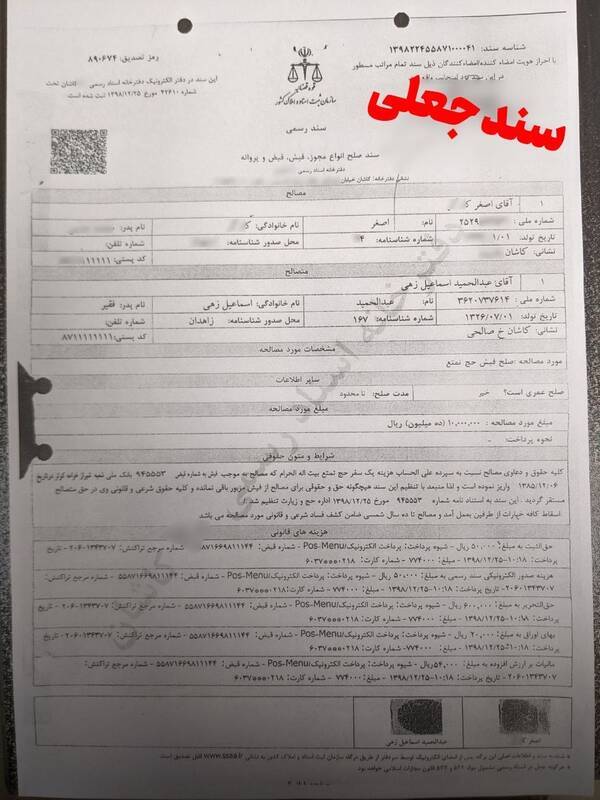 شناسه سند: ۱۳۹۸۲۲۴۵۵۸۷۱۰۰۰۰۴۱
با احراز هویت امضاء کننده/امضاءکنندگان ذیل سند تمام مراتب مسطور
در این
سند جعلی
قوه قضائیه
سازمان ثبت اسناد و املاک کشور
رمز تصدیق: ۸۹۰۶۷۴
این سند در دفتر الکترونیک دفترخانه اسناد رسمی کاشان تحت
شماره ۴۲۶۱۰ مورخ ۱۳۹۸/۱۲/۲۵ ثبت شده است.
سند رسمی
سند صلح انواع مجوز، فیش، قبض و پروانه
دفترخانه اسناد رسمی
نشانی دفترخانه: کاشان خیابان
مصالح
۱ آقای اصغر
شماره ملی: ۲۵۲۹ نام: اصغر نام خانوادگی: نام پدر:
تاریخ تولد: ۱/۰۱ شماره شناسنامه: ۴ محل صدور شناسنامه: شماره تلفن:
نشانی: کاشان کد پستی: ۱۱۱۱۱
متصالح
۱ آقای عبدالحمید اسماعیل زهی
شماره ملی: ۳۶۲۰۷۳۷۶۱۴ نام: عبدالحمید نام خانوادگی: اسماعیل زهی نام پدر: فقیر
تاریخ تولد: ۱۳۲۶/۰۷/۰۱ شماره شناسنامه: ۱۶۷ محل صدور شناسنامه: زاهدان شماره تلفن:
نشانی: کاشان خ صالحی کد پستی: ۸۷۱۱۱۱۱۱۱۱
مشخصات مورد مصالحه
مورد مصالحه: صلح فیش حج تمتع
سایر اطلاعات
صلح عمری است؟ خیر مدت صلح: نامحدود
مبلغ مورد مصالحه
مبلغ مورد مصالحه: ۱۰,۰۰۰,۰۰۰ (ده میلیون) ریال
نحوه پرداخت: -
شرایط و متون حقوقی
کلیه حقوق و دعاوی مصالح نسبت به سپرده علی الحساب هزینه یک سفر حج تمتع بیت اله الحرام که مصالح به موجب فیش به شماره فیش ۹۴۵۵۵۳ بانک ملی شعبه شیراز در تاریخ
۱۳۸۵/۱۲/۰۶ واریز نموده است و لذا متبعد با تنظیم این سند هیچگونه حق و حقوقی برای مصالح از فیش مزبور باقی نمانده و کلیه حقوق شرعی و قانونی وی در حق متصالح
مستقر گردید . این سند به استناد نامه شماره ۹۴۵۵۵۳ مورخ ۱۳۹۸/۱۲/۲۵ اداره حج و زیارت تنظیم شد .
اسقاط کافه خیارات از طرفین بعمل آمد و مصالح تا ده سال شمسی ضامن کشف فساد شرعی و قانونی مورد مصالحه می باشد
هزینه های قانونی
حق‌الثبت به مبلغ: ۵۰,۰۰۰ ریال - شیوه پرداخت: پرداخت الکترونیک/Pos-Menu شماره قبض: ۵۵۸۷۱۶۶۹۸۱۱۱۴۴ - شماره مرجع تراکنش: ۲۰۶۰۱۳۴۳۷۰۷ - تاریخ
پرداخت: ۱۰:۱۸-۱۳۹۸/۱۲/۲۵ - مبلغ: ۷۷۴۰۰۰ - شماره کارت: ۶۰۳۷****۰۲۱۸
هزینه صدور الکترونیکی سند رسمی به مبلغ: ۵۰,۰۰۰ ریال - شیوه پرداخت: پرداخت الکترونیک/Pos-Menu - شماره قبض: ۵۵۸۷۱۶۶۹۸۱۱۱۴۴ - شماره مرجع تراکنش:
۲۰۶۰۱۳۴۳۷۰۷ - تاریخ پرداخت: ۱۰:۱۸-۱۳۹۸/۱۲/۲۵ - مبلغ: ۷۷۴۰۰۰ - شماره کارت: ۶۰۳۷****۰۲۱۸
حق‌التحریر به مبلغ: ۶۰۰,۰۰۰ ریال - شیوه پرداخت: پرداخت الکترونیک/Pos-Menu - شماره قبض: ۵۵۸۷۱۶۶۹۸۱۱۱۴۴ - شماره مرجع تراکنش: ۲۰۶۰۱۳۴۳۷۰۷ - تاریخ
پرداخت: ۱۰:۱۸-۱۳۹۸/۱۲/۲۵ - مبلغ: ۷۷۴۰۰۰ - شماره کارت: ۶۰۳۷****۰۲۱۸
بهای اوراق به مبلغ: ۲۰,۰۰۰ ریال - شیوه پرداخت: پرداخت الکترونیک/Pos-Menu - شماره قبض: ۵۵۸۷۱۶۶۹۸۱۱۱۴۴ - شماره مرجع تراکنش: ۲۰۶۰۱۳۴۳۷۰۷ - تاریخ
پرداخت: ۱۰:۱۸-۱۳۹۸/۱۲/۲۵ - مبلغ: ۷۷۴۰۰۰ - شماره کارت: ۶۰۳۷****۰۲۱۸
مالیات بر ارزش افزوده به مبلغ: ۵۴,۰۰۰ ریال - شیوه پرداخت: پرداخت الکترونیک/Pos-Menu - شماره قبض: ۵۵۸۷۱۶۶۹۸۱۱۱۴۴ - شماره مرجع تراکنش:
۲۰۶۰۱۳۴۳۷۰۷ - تاریخ پرداخت: ۱۰:۱۸-۱۳۹۸/۱۲/۲۵ - مبلغ: ۷۷۴۰۰۰ - شماره کارت: ۶۰۳۷****۰۲۱۸
اصغر
عبدالحمید اسماعیل زهی
شناسه سند و اطلاعات اصلی این برگه پس از امضای الکترونیک توسط سردفتر از طریق درگاه سازمان ثبت اسناد و املاک کشور به نشانی www.ssaa.ir قابل تصدیق است.